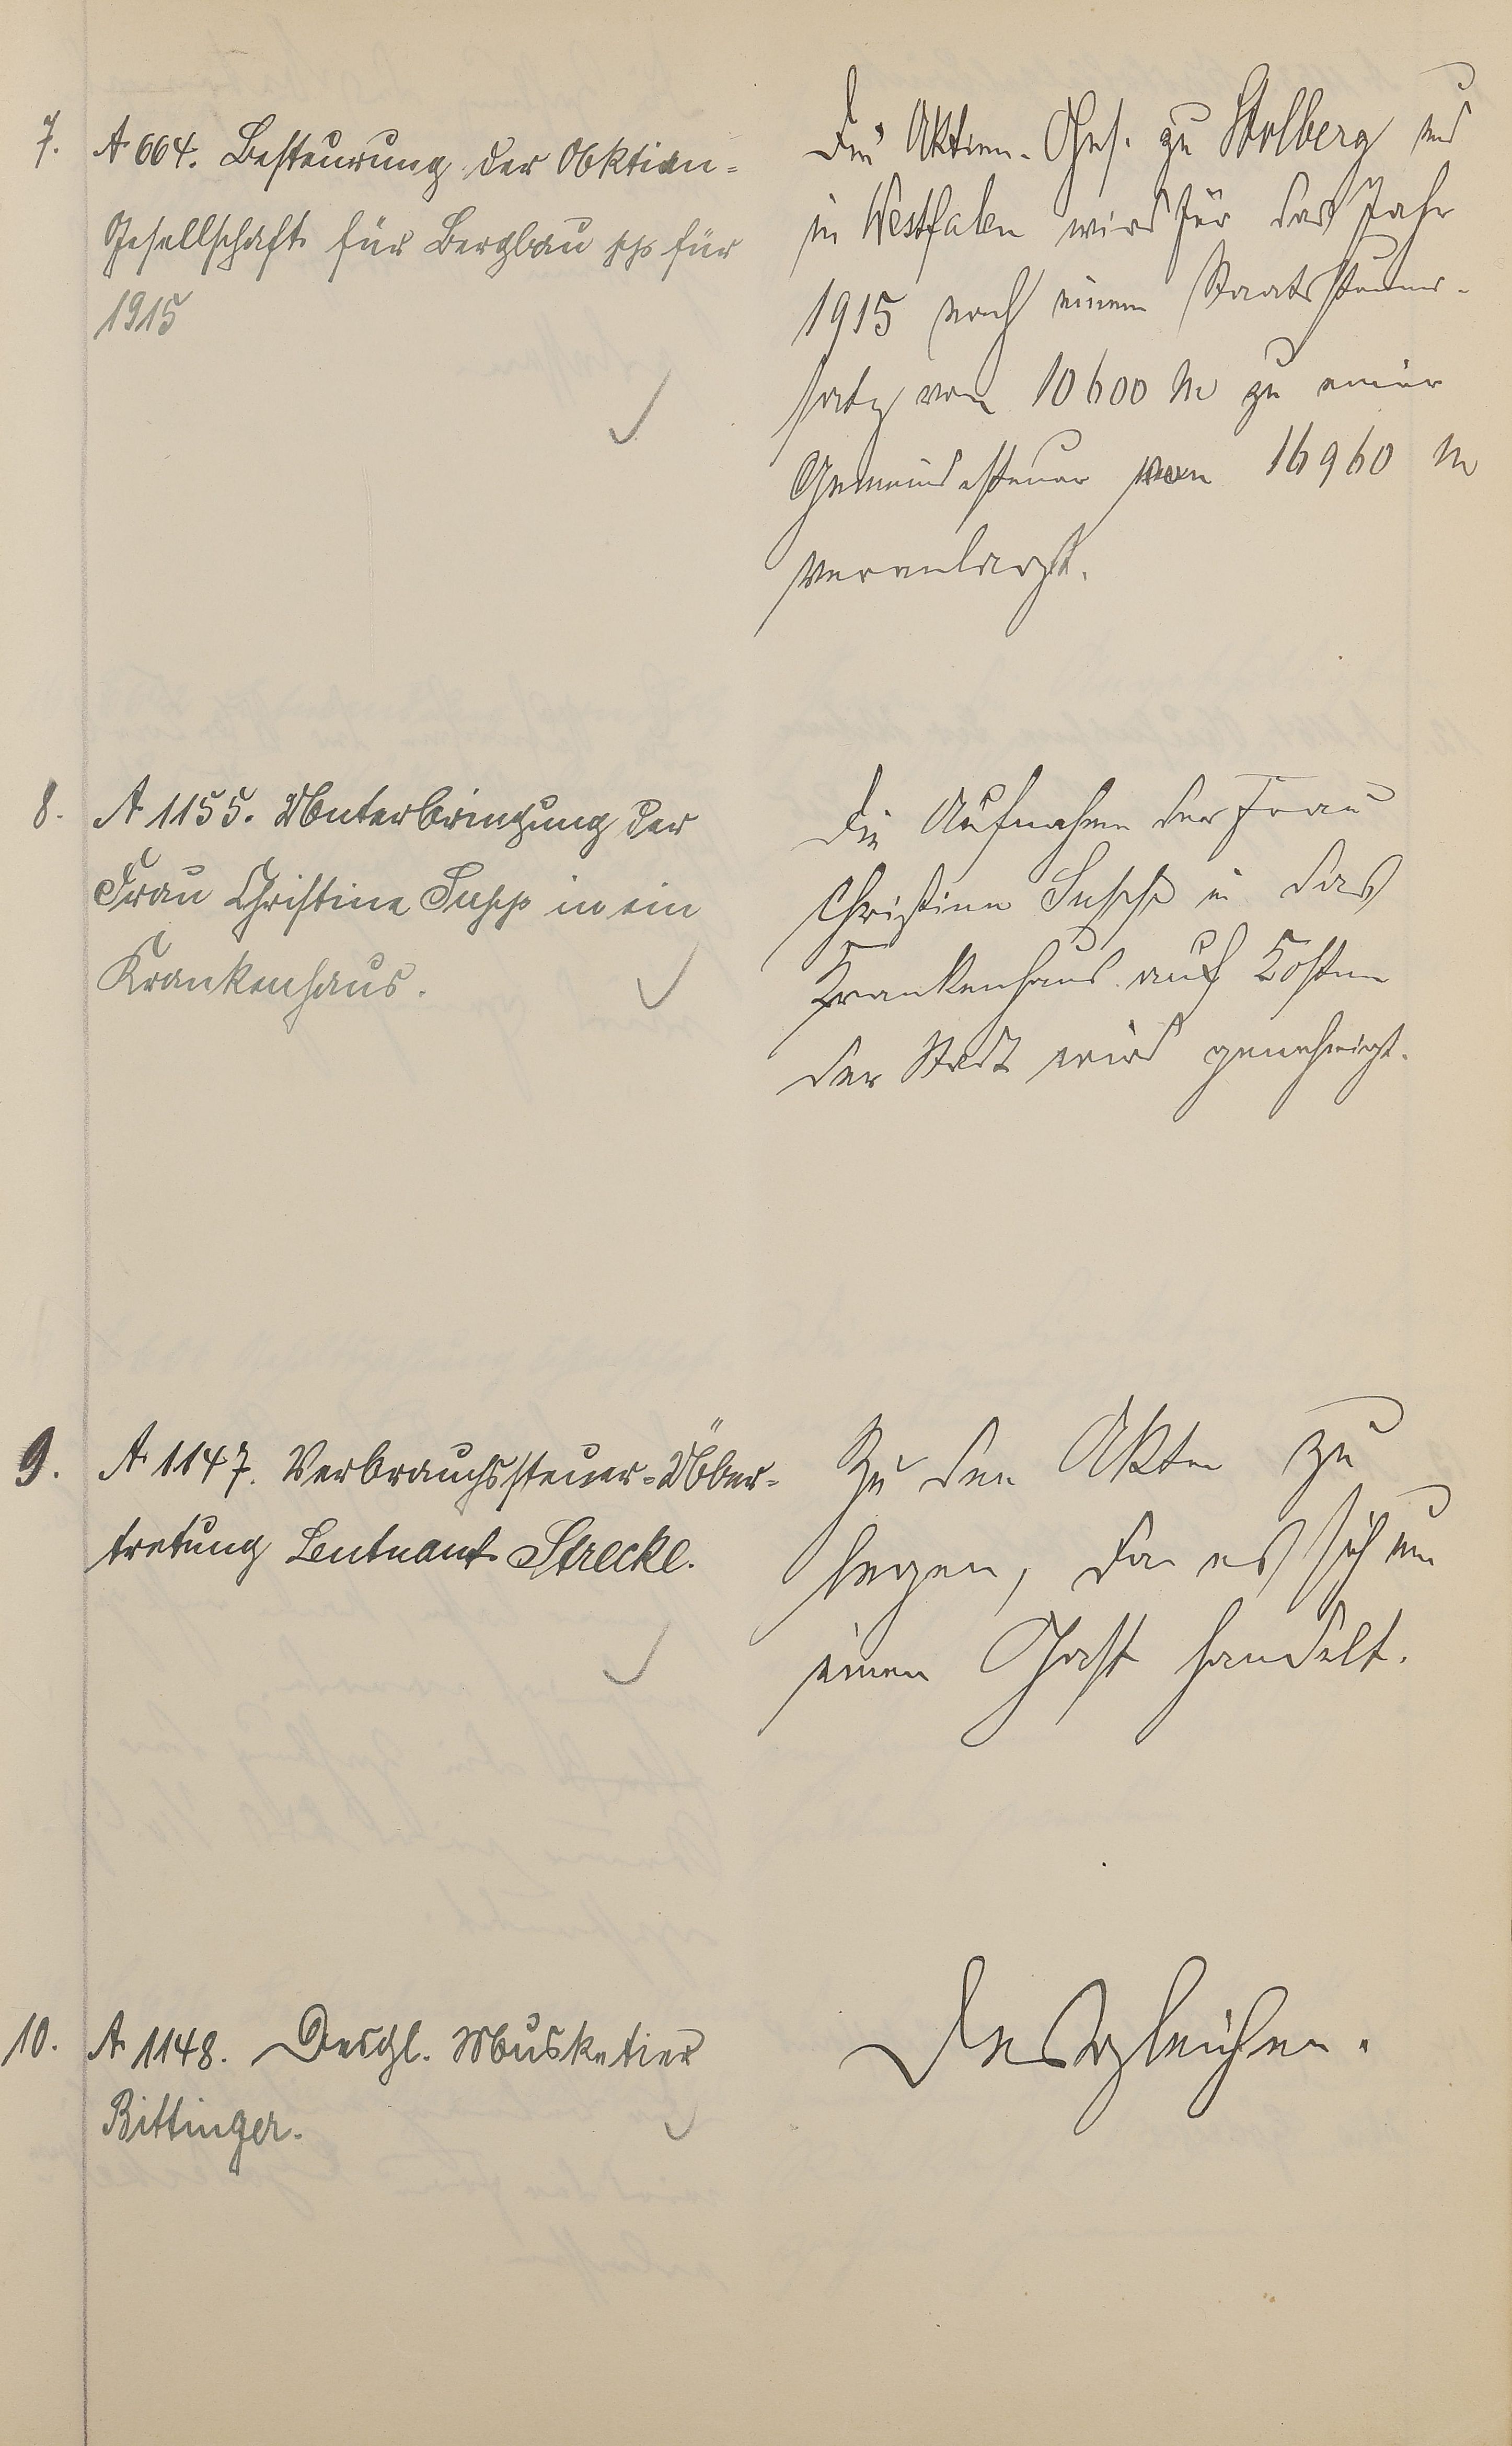 7. A 664. Besteuerung der Aktien-
Gesellschaft für Bergbau pp für
1915
Die Aktien-Ges. zu Stolberg und
in Westfalen wird für das Jahr
1915 nach einem Staatssteuer-
satz von 10600 M zu einer
Gemeindesteuer von 16960 M
veranlagt.
8. A 1155. Unterbringung der
Frau Christine Supp in ein
Krankenhaus.
Die Aufnahme der Frau
Christine Supp in das
Krankenhaus auf Kosten
der Stadt wird genehmigt.
9. A 1147. Verbrauchssteuer-Über-
tretung Leutnant Strecke.
Zu den Akten zu
legen, da es sich um
einen Gast handelt.
10. A 1148. Desgl. Musketier
Bittinger.
Desgleichen.